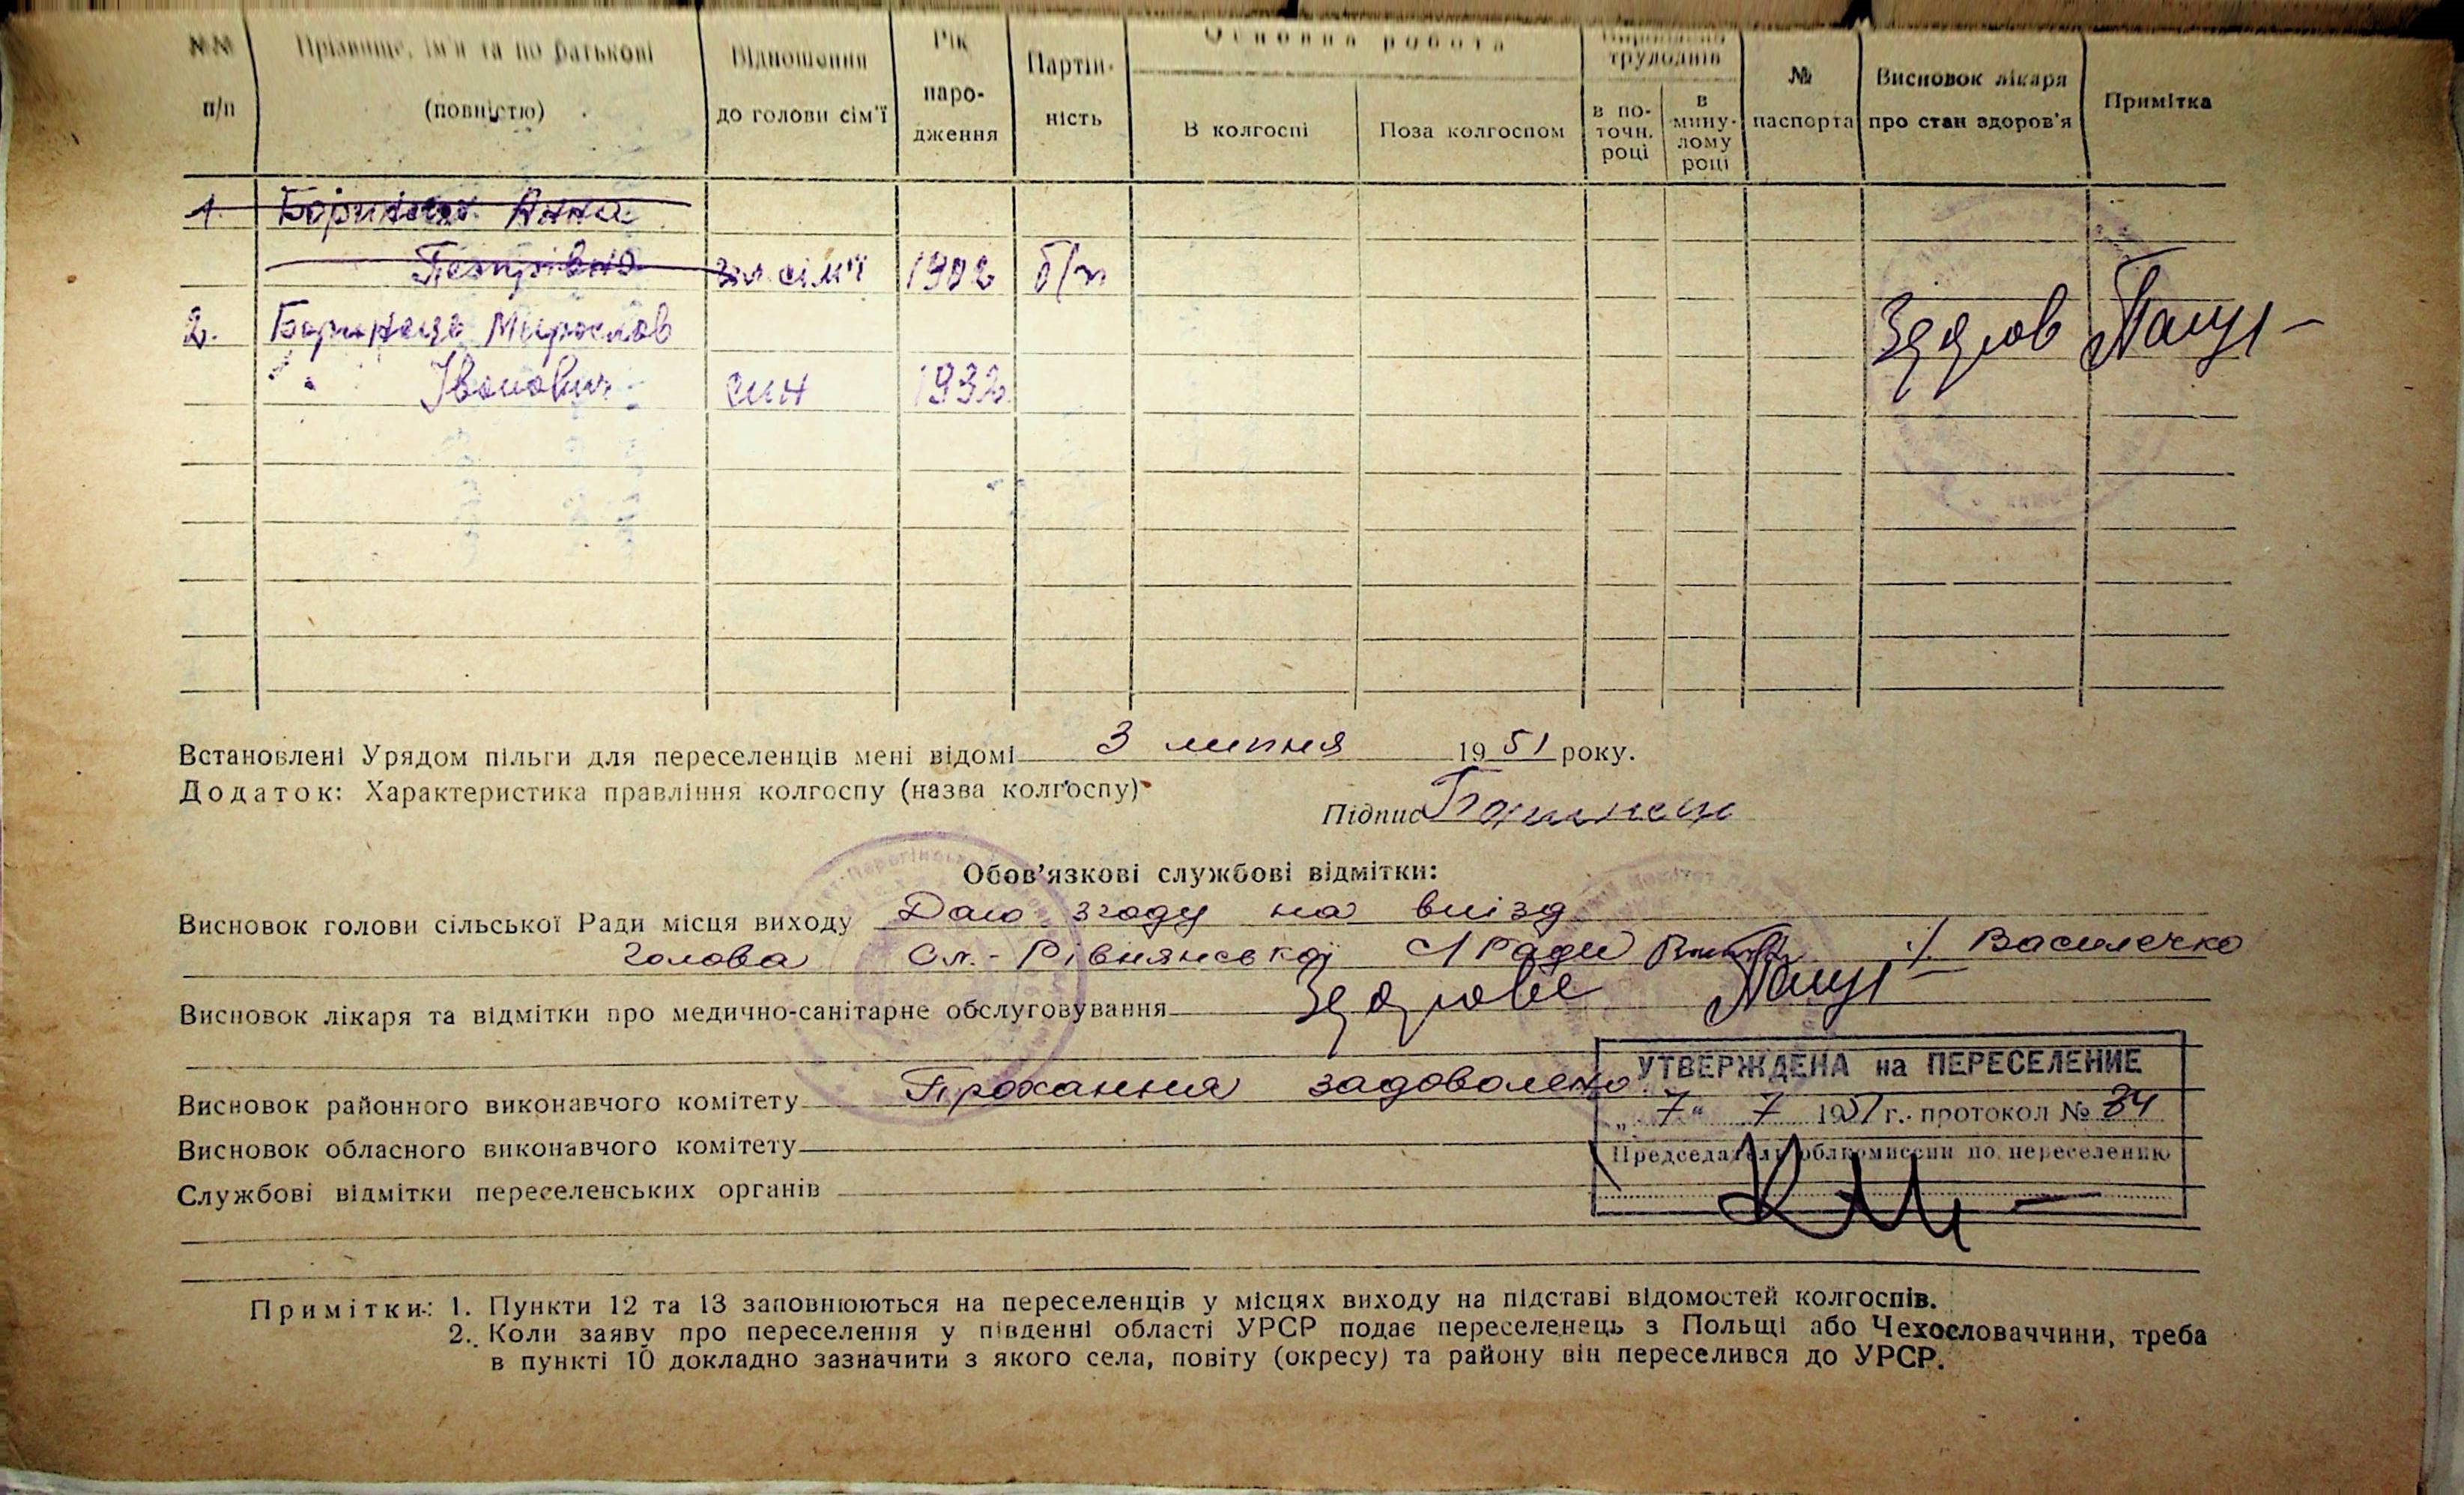 №№ п/п
Прізвище, ім'я та по батькові (повністю)
Відношення до голови сім'ї
Рік народження
Партійність
Основна робота
В колгоспі
Поза колгоспом
трудоднів
в поточн. році
в минулому році
№ паспорта
Висновок лікаря про стан здоров'я
Примітка
1. Боринець Анна
Петрівна гол. сім'ї 1902 б/п
2. Боринець Мирослав
Іванович син 1932
Здоров
Встановлені Урядом пільги для переселенців мені відомі 3 липня 1951 року.
Додаток: Характеристика правління колгоспу (назва колгоспу)
Підпис Боринець
Обов'язкові службові відмітки:
Висновок голови сільської Ради місця виходу Даю згоду на виїзд
Голова Сл.-Рівнянської с/Ради /Василечко
Висновок лікаря та відмітки про медично-санітарне обслуговування Здорові
УТВЕРЖДЕНА на ПЕРЕСЕЛЕНИЕ
Висновок районного виконавчого комітету Прохання задоволено
„7“ 7 1951 г. протокол № 34
Висновок обласного виконавчого комітету
Председатель облкомиссии по переселению
Службові відмітки переселенських органів
Примітки: 1. Пункти 12 та 13 заповнюються на переселенців у місцях виходу на підставі відомостей колгоспів.
2. Коли заяву про переселення у південні області УРСР подає переселенець з Польщі або Чехословаччини, треба
в пункті 10 докладно зазначити з якого села, повіту (округу) та району він переселився до УРСР.